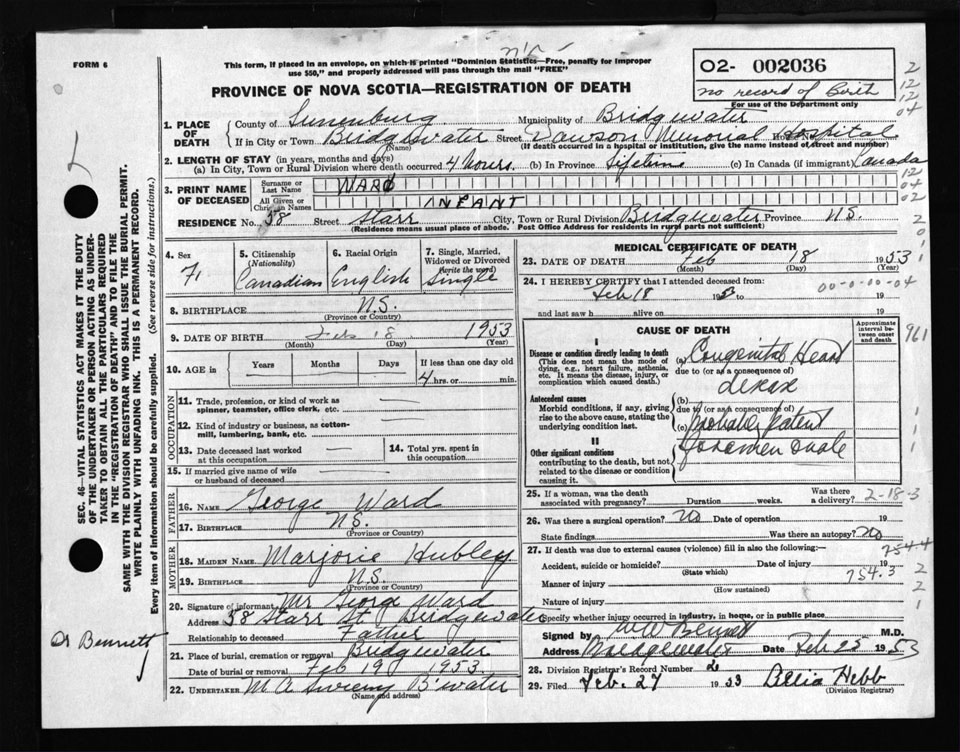 FORM 6
This form, if placed in an envelope, on which is printed "Dominion Statistics—Free, penalty for improper
use $50," and properly addressed will pass through the mail "FREE"
02- 002036
no record of Birth
For use of the Department only
PROVINCE OF NOVA SCOTIA—REGISTRATION OF DEATH
2
12
12
04
1. PLACE OF DEATH
County of Lunenburg Municipality of Bridgewater
If in City or Town Bridgewater Street Dawson Memorial Hospital House No.
(Name) (If death occurred in a hospital or institution, give the name instead of street and number)
2. LENGTH OF STAY (in years, months and days)
(a) In City, Town or Rural Division where death occurred 4 hours. (b) In Province Lifetime (c) In Canada (if immigrant) Canada
3. PRINT NAME OF DECEASED
Surname or Last Name WARD
All Given or Christian Names INFANT
12
04
02
RESIDENCE No. 58 Street Starr City, Town or Rural Division Bridgewater Province N.S.
(Residence means usual place of abode. Post Office Address for residents in rural parts not sufficient)
2
0
1
4. Sex F.
5. Citizenship (Nationality) Canadian
6. Racial Origin English
7. Single, Married, Widowed or Divorced (write the word) Single
8. BIRTHPLACE N.S.
(Province or Country)
9. DATE OF BIRTH Feb 18 1953
(Month) (Day) (Year)
10. AGE in Years Months Days If less than one day old
4 hrs. or min.
OCCUPATION
11. Trade, profession, or kind of work as
spinner, teamster, office clerk, etc.
12. Kind of industry or business, as cotton-
mill, lumbering, bank, etc.
13. Date deceased last worked
at this occupation
14. Total yrs. spent in
this occupation
15. If married give name of wife
or husband of deceased
FATHER
16. NAME George Ward
17. BIRTHPLACE N.S.
(Province or Country)
MOTHER
18. MAIDEN NAME Marjorie Hubley
19. BIRTHPLACE N.S.
(Province or Country)
20. Signature of informant Mr George Ward
Address 58 Starr St. Bridgewater
Relationship to deceased Father
21. Place of burial, cremation or removal Bridgewater
Date of burial or removal Feb 19 1953
22. UNDERTAKER M A Sweeny B'water
(Name and address)
MEDICAL CERTIFICATE OF DEATH
23. DATE OF DEATH Feb 18 1953
(Month) (Day) (Year)
24. I HEREBY CERTIFY that I attended deceased from:
Feb 18 1953 to 19
00-0-00-04
and last saw h alive on 19
CAUSE OF DEATH
Approximate interval between onset and death
961
I
Disease or condition directly leading to death
(This does not mean the mode of dying, e.g., heart failure, asthenia, etc. It means the disease, injury, or complication which caused death.)
(a) Congenital Heart
due to (or as a consequence of)
Antecedent causes
Morbid conditions, if any, giving rise to the above cause, stating the underlying condition last.
(b)
due to (or as a consequence of)
(c) Probably patent
foramen ovale
II
Other significant conditions
contributing to the death, but not related to the disease or condition causing it.
1
1
1
25. If a woman, was the death associated with pregnancy? Duration weeks. Was there a delivery?
2-18-3
26. Was there a surgical operation? No Date of operation 19
State findings Was there an autopsy? No
754.4
27. If death was due to external causes (violence) fill in also the following:—
Accident, suicide or homicide? Date of injury 19
(State which)
754.3
Manner of injury
(How sustained)
Nature of injury
2
2
1
Specify whether injury occurred in industry, in home, or in public place
Signed by W W Bennett M.D.
Address Bridgewater Date Feb 25 1953
28. Division Registrar's Record Number 2
29. Filed Feb. 27 1953 Hebb
(Division Registrar)
SEC. 46—VITAL STATISTICS ACT MAKES IT THE DUTY
OF THE UNDERTAKER OR PERSON ACTING AS UNDER-
TAKER TO OBTAIN ALL THE PARTICULARS REQUIRED
IN THE "REGISTRATION OF DEATH" AND TO FILE THE
SAME WITH THE DIVISION REGISTRAR WHO SHALL ISSUE THE BURIAL PERMIT.
WRITE PLAINLY WITH UNFADING INK. THIS IS A PERMANENT RECORD.
Every item of information should be carefully supplied. (See reverse side for instructions.)
Dr Bennett